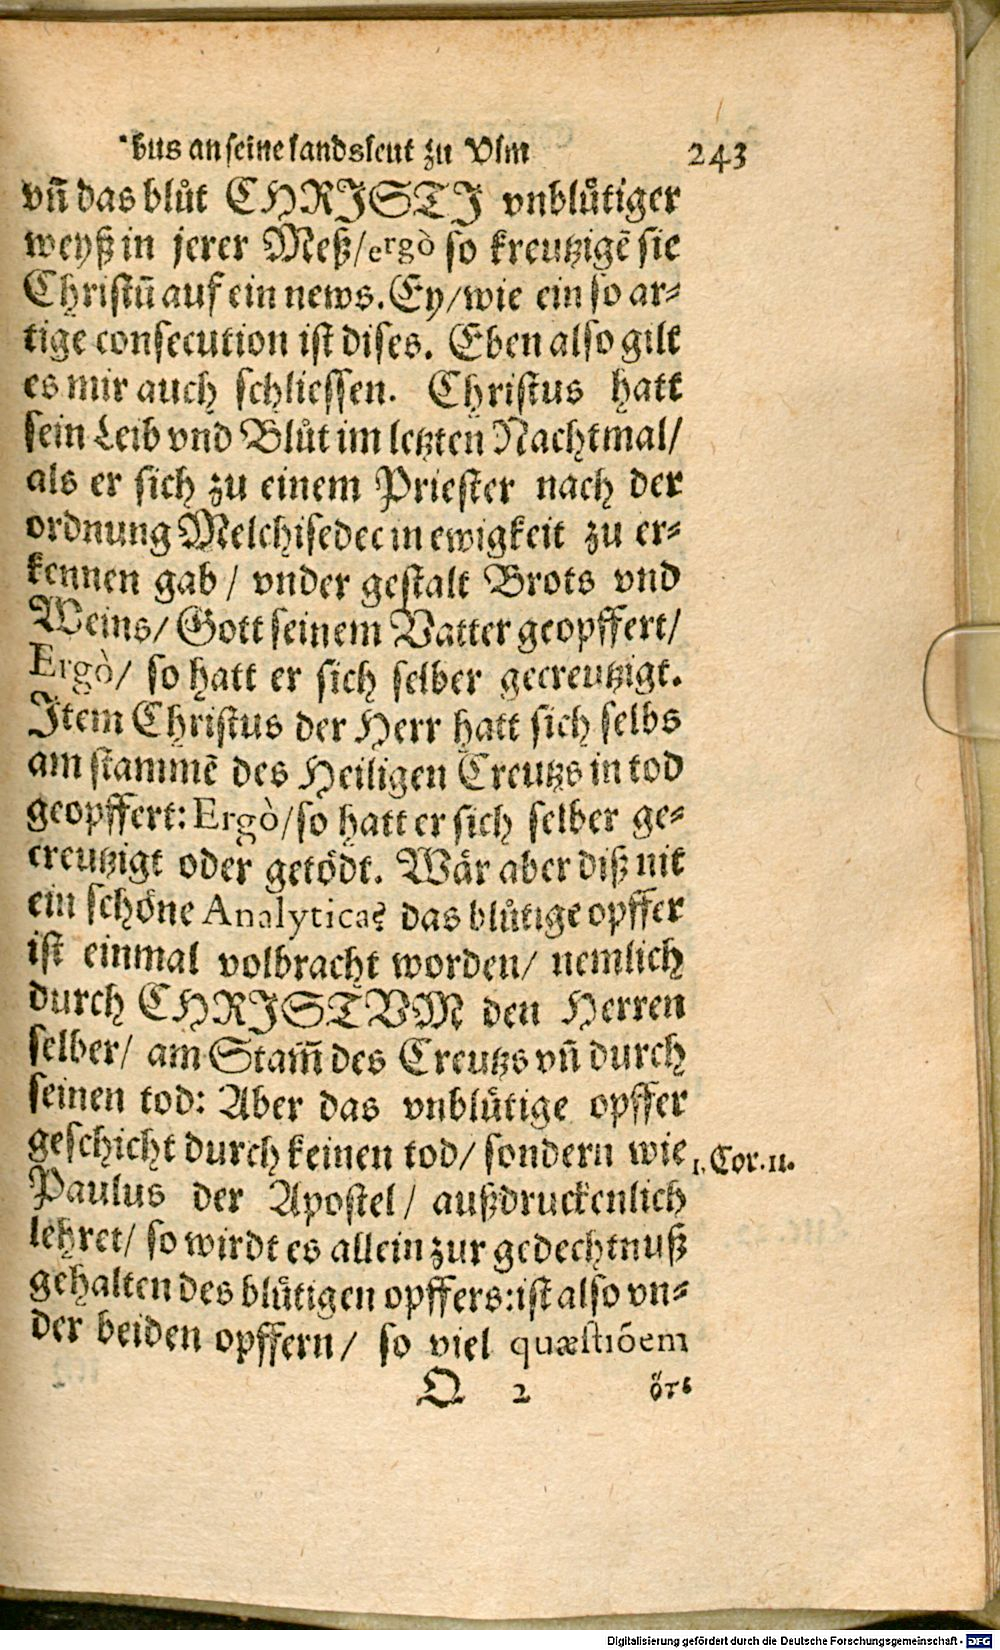 bus an seine landsleut zu Vlm 243
vn̄ das blůt CHRISTI vnblůtiger
weyß in jerer Meß/ergò so kreutzigē sie
Christū auf ein news. Ey/wie ein so ar-
tige consecution ist dises. Eben also gilt
es mir auch schliessen. Christus hatt
sein Leib vnd Blůt im letzten Nachtmal/
als er sich zu einem Priester nach der
ordnung Melchisedec in ewigkeit zu er-
kennen gab / vnder gestalt Brots vnd
Weins/ Gott seinem Vatter geopffert/
Ergò/ so hatt er sich selber gecreutzigt.
Item Christus der Herr hatt sich selbs
am stammē des Heiligen Creutzs in tod
geopffert: Ergò/so hatt er sich selber ge-
creutzigt oder getödt. Wär aber diß nit
ein schöne Analytica? das blůtige opffer
ist einmal volbracht worden/ nemlich
durch CHRISTVM den Herren
selber/ am Stam̄ des Creutzs vn̄ durch
seinen tod: Aber das vnblůtige opffer
geschicht durch keinen tod/ sondern wie
1. Cor. 11.
Paulus der Apostel / außdruckenlich
lehret/ so wirdt es allein zur gedechtnuß
gehalten des blůtigen opffers: ist also vn-
der beiden opffern/ so viel quæstiōem
Q 2